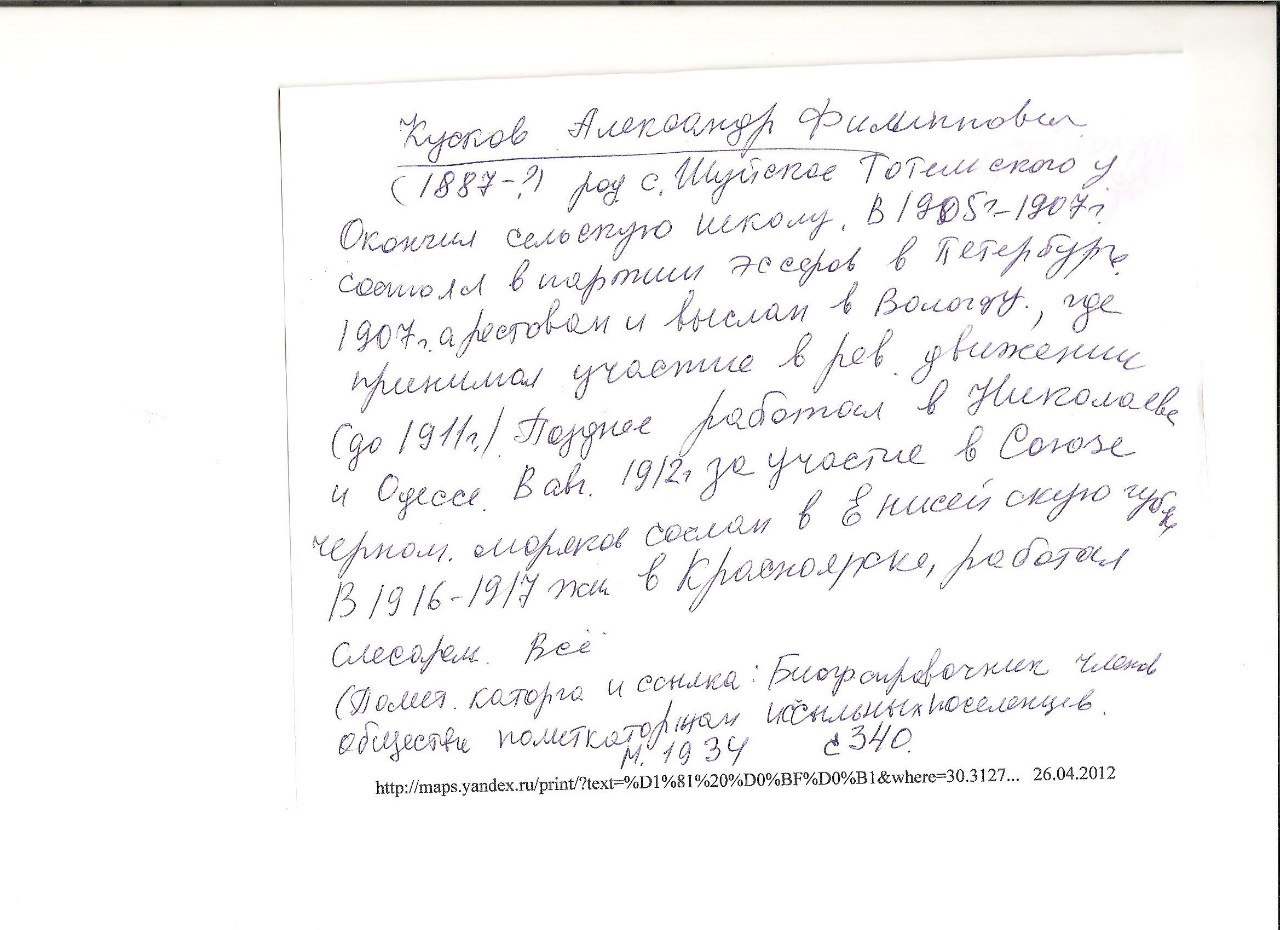 Кусков Александр Филиппович
(1887-?) род с. Шуйское Тотемского у
Окончил сельскую школу. В 1905г-1907г.
состоял в партии эсеров в Петербурге
1907г. арестован и выслан в Вологду., где
принимал участие в рев. движении
(до 1911г.) Позднее работал в Николаеве
и Одессе. В авг. 1912г за участие в Союзе
черном. моряков сослан в Енисейскую губ
В 1916-1917 жил в Красноярске, работал
слесарем. Всё
(Полит. каторга и ссылка: Биогр справочник членов
общества политкаторжан и ссыльных поселенцев.
М. 1934 с 340.
http://maps.yandex.ru/print/?text=%D1%81%20%D0%BF%D0%B1&where=30.3127... 26.04.2012